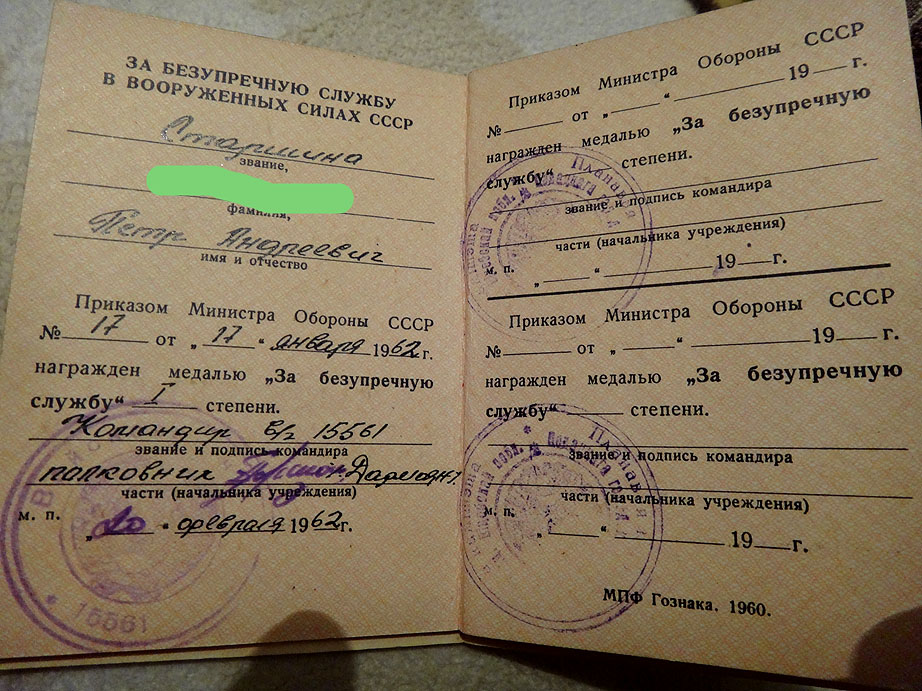 ЗА БЕЗУПРЕЧНУЮ СЛУЖБУ
В ВООРУЖЕННЫХ СИЛАХ СССР
Старшина
звание,
фамилия,
Петр Андреевич
имя и отчество
Приказом Министра Обороны СССР
№ 17 от „17“ января 1962 г.
награжден медалью „За безупречную
службу“ I степени.
Командир в/ч 15561
звание и подпись командира
полковник
части (начальника учреждения)
м. п.
„20“ февраля 1962 г.
* 15561
Приказом Министра Обороны СССР
№ от „ “ 19 г.
награжден медалью „За безупречную
службу“ степени.
звание и подпись командира
части (начальника учреждения)
м. п. „ “ 19 г.
Приказом Министра Обороны СССР
№ от „ “ 19 г.
награжден медалью „За безупречную
службу“ степени.
звание и подпись командира
части (начальника учреждения)
м. п. „ “ 19 г.
МПФ Гознака. 1960.